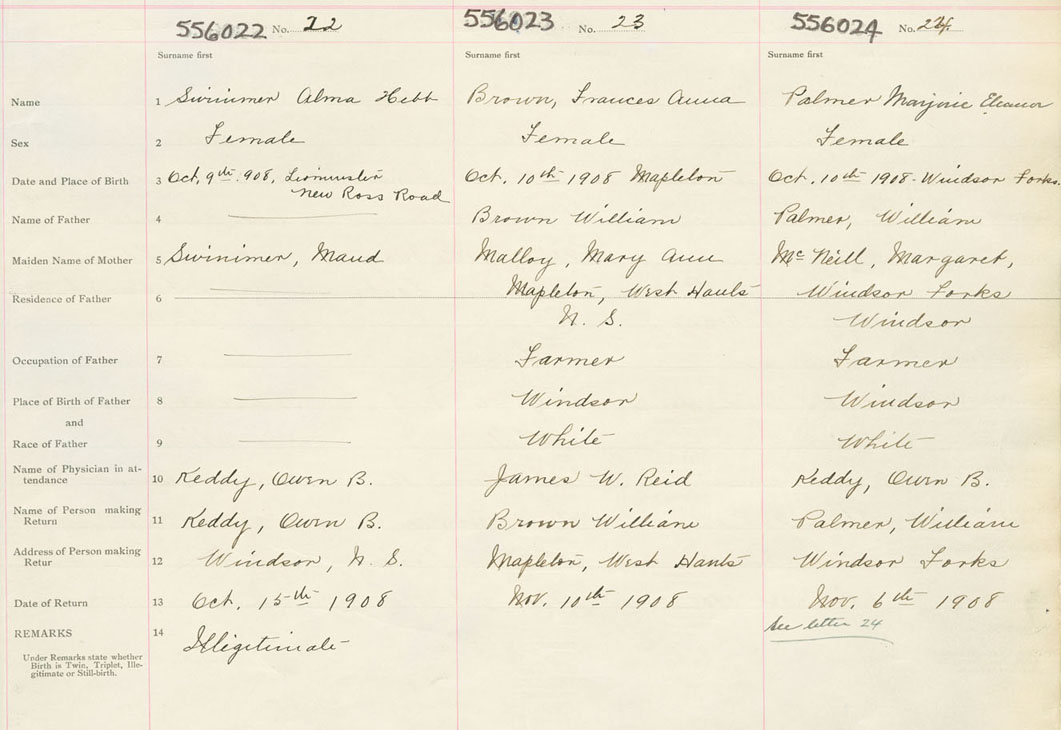 556022 No. 22 556023 No. 23 556024 No. 24
Surname first Surname first Surname first
Name 1 Swinimer Alma Hebb Brown, Frances Anna Palmer Marjorie Eleanor
Sex 2 Female Female Female
Date and Place of Birth 3 Oct. 9th 908, Oct. 10th 1908 Mapleton Oct. 10th 1908 - Windsor Forks.
New Ross Road
Name of Father 4 Brown William Palmer, William
Maiden Name of Mother 5 Swinimer, Maud Malloy, Mary Ann McNeill, Margaret,
Residence of Father 6 Mapleton, West Hants Windsor Forks
N. S. Windsor
Occupation of Father 7 Farmer Farmer
Place of Birth of Father 8 Windsor Windsor
and
Race of Father 9 White White
Name of Physician in at-
tendance 10 Keddy, Owen B. James W. Reid Keddy, Owen B.
Name of Person making
Return 11 Keddy, Owen B. Brown William Palmer, William
Address of Person making
Retur 12 Windsor, N. S. Mapleton, West Hants Windsor Forks
Date of Return 13 Oct. 15th 1908 Nov. 10th 1908 Nov. 6th 1908
REMARKS 14 Illigitimate See letter 24
Under Remarks state whether
Birth is Twin, Triplet, Ille-
gitimate or Still-birth.